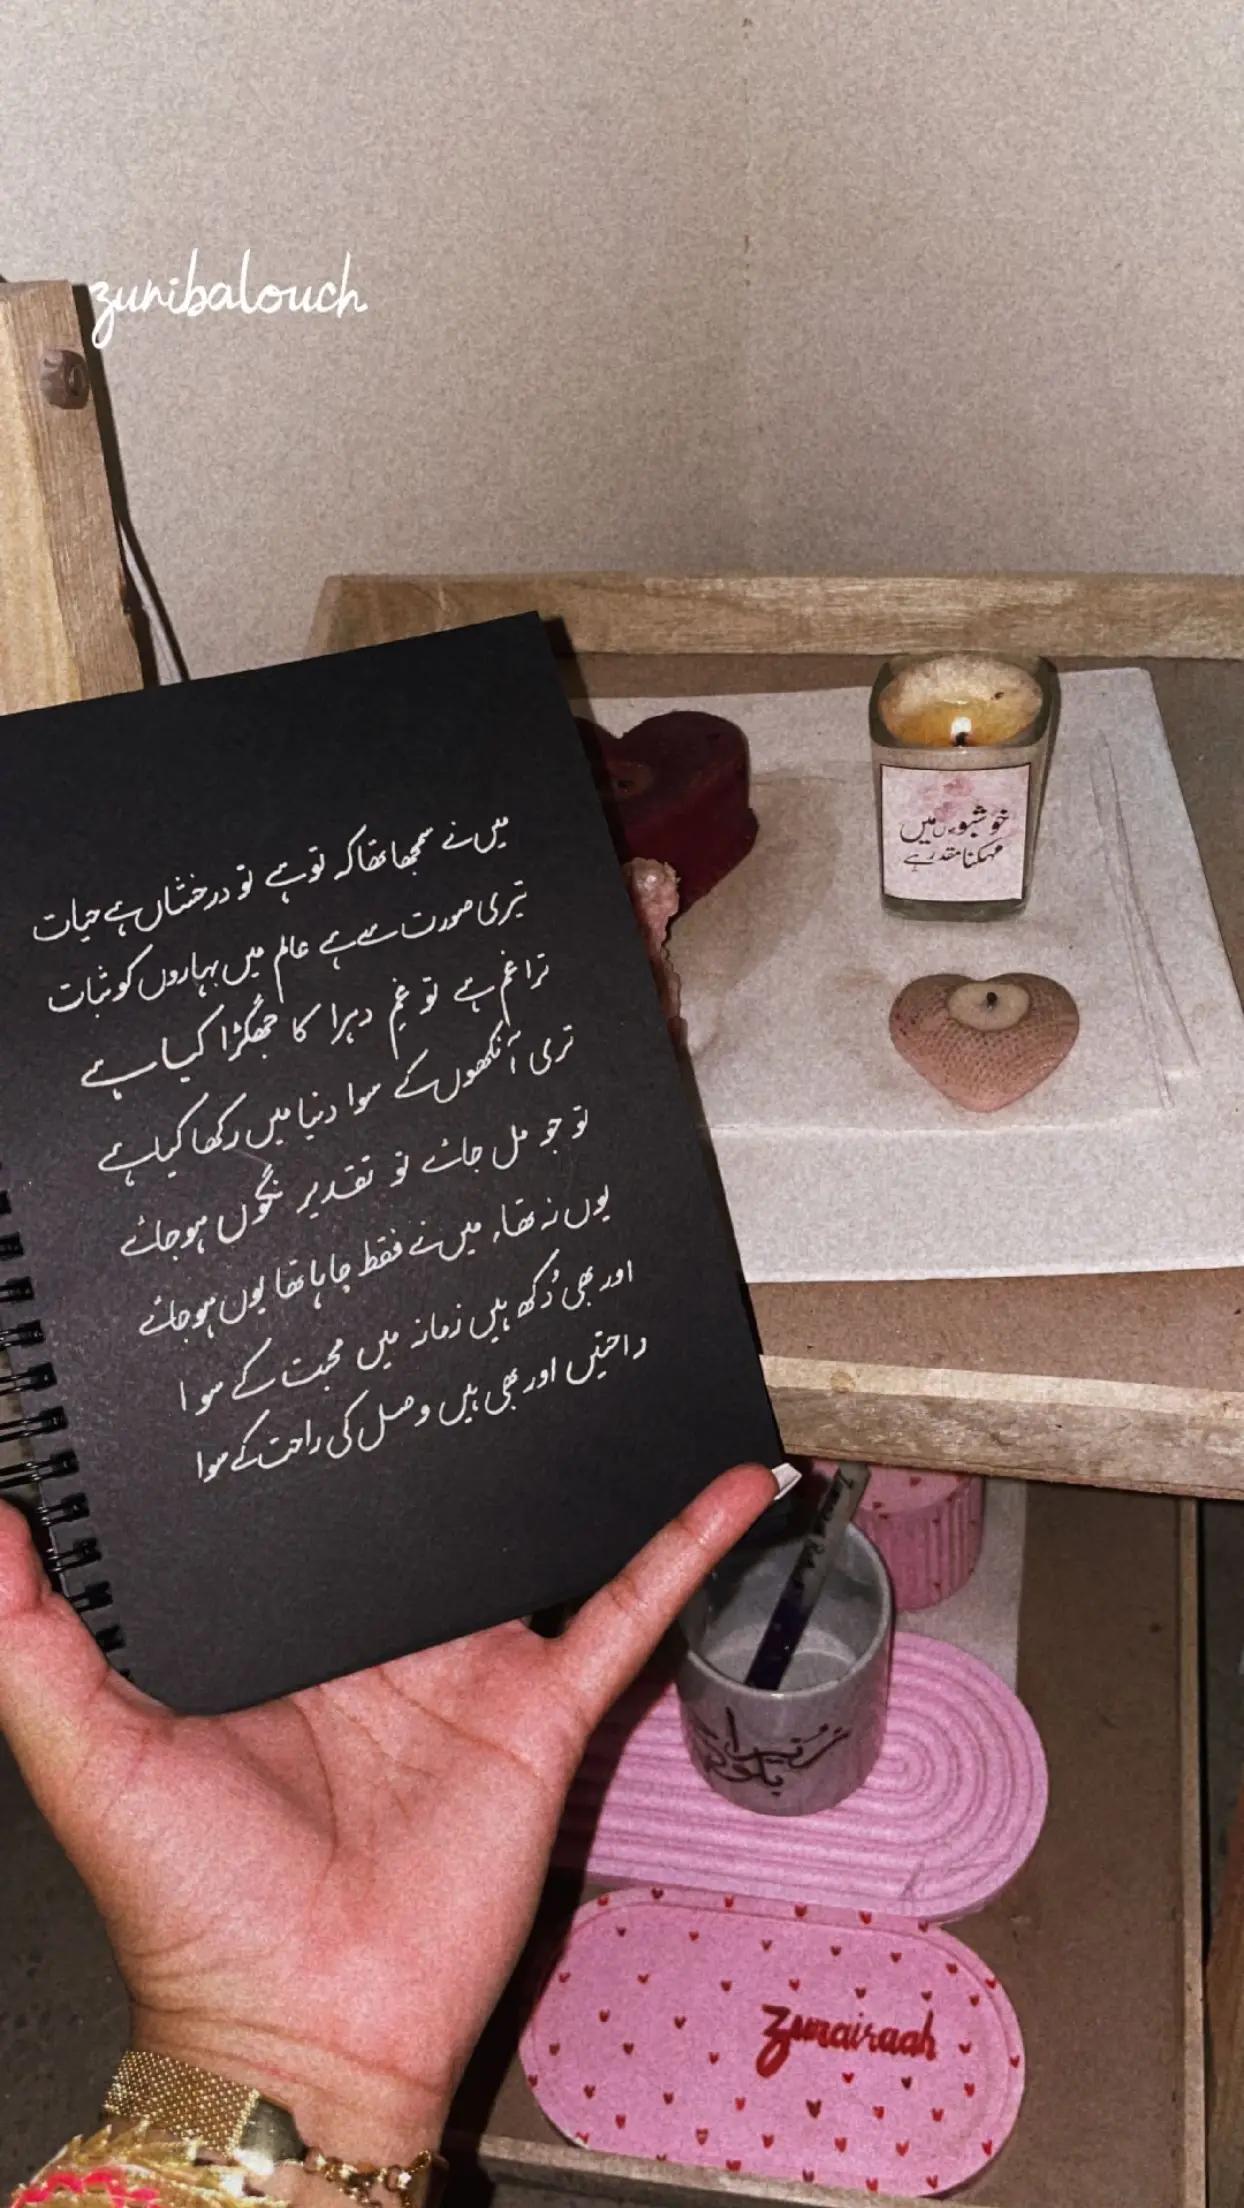 zunibalouch
میں نے سمجھا تھا کہ تو ہے تو درخشاں ہے حیات
تیری صورت سے ہے عالم میں بہاروں کو ثبات
ترا غم ہے تو غمِ دہرا کا جھگڑا کیا ہے
تری آنکھوں کے سوا دنیا میں رکھا کیا ہے
تو جو مل جائے تو تقدیر نگوں ہو جائے
یوں نہ تھا، میں نے فقط چاہا تھا یوں ہو جائے
اور بھی دُکھ ہیں زمانہ میں محبت کے سوا
راحتیں اور بھی ہیں وصل کی راحت کے سوا
خوشبوؤں میں
مہکنا مقدر ہے
zunairaah